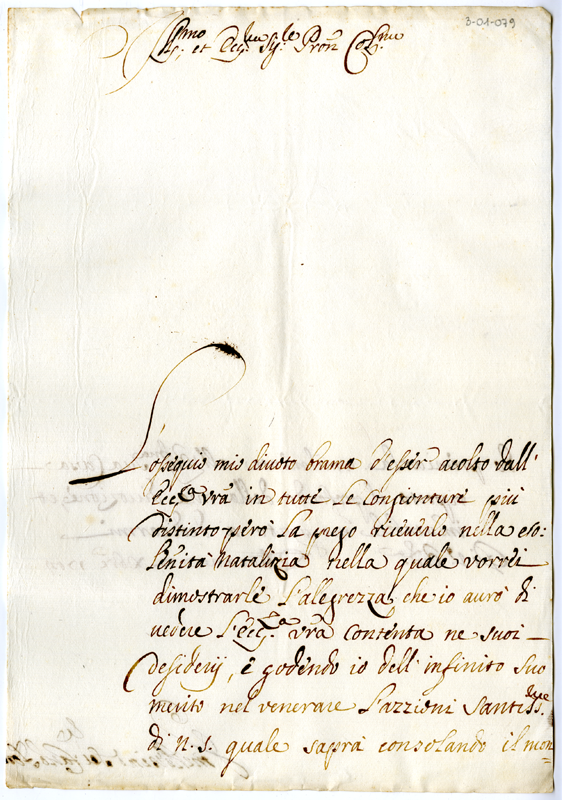 3-01-079
Ill.mo et Ecc.mo Sig.re Pron Col.mo
L'ossequio mio divoto brama d'esser acolto dall'
Ecc.a vra in tutte le Congionture piu
distinto però la prego riceverlo nella so:
lenità Natalizia nella quale vorrei
dimostrarle l'alegrezza, che io aurò di
vedere l'Ecc.a vra contenta ne suoi
desiderij, e godendo io dell'infinito suo
merito nel venerare l'azzioni Santiss.me
di N. S. quale saprà consolando il mon=